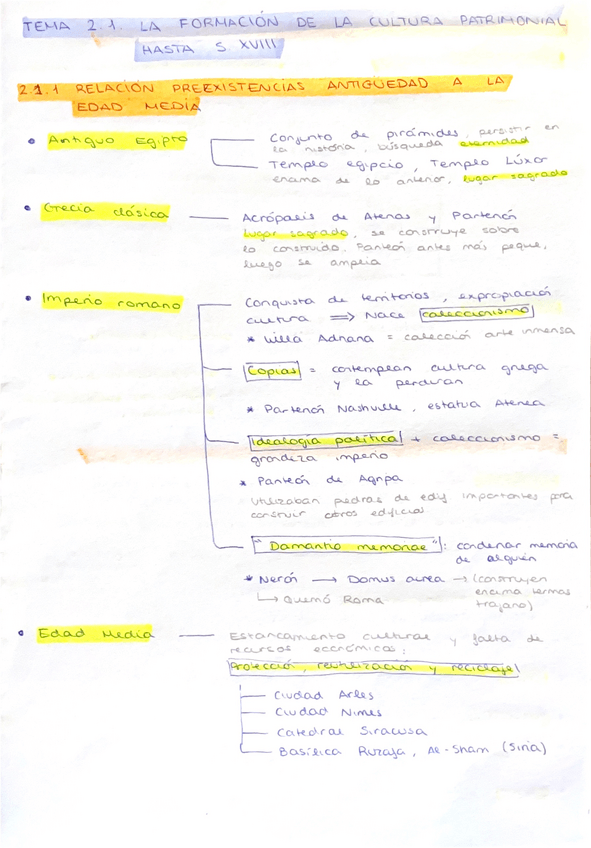 TEMA 2.1. LA FORMACIÓN DE LA CULTURA PATRIMONIAL
HASTA S XVIII
2.1.1 RELACIÓN PREEXISTENCIAS ANTIGÜEDAD A LA
EDAD MEDIA
• Antiguo Egipto
Conjunto de pirámides, persistir en
la historia, búsqueda eternidad
Templo egipcio, Templo Lúxor
encima de lo anterior, lugar sagrado
• Grecia clásica
Acrópolis de Atenas y Partenón
Lugar sagrado, se construye sobre
lo construido. Panteón antes más peque,
luego se amplia
• Imperio romano
Conquista de territorios, expropiación
cultura ⟹ Nace coleccionismo
* Villa Adriana = colección arte inmensa
Copias = contemplan cultura griega
y la perduran
* Partenón Nashville, estatua Atenea
Idealogía política + coleccionismo =
grandeza imperio
* Panteón de Agripa
Utilizaban piedras de edif importantes para
construir otros edificios
"Damantio memoriae": condenar memoria
de alguien
* Nerón → Domus aurea → (construyen
encima termas
trajano)
↳ Quemó Roma
• Edad Media
Estancamiento cultural y falta de
recursos económicos:
Protección, reutilización y reciclaje
Ciudad Arles
Ciudad Nimes
Catedral Siracusa
Basílica Ruzafa, Al-Sham (Siria)